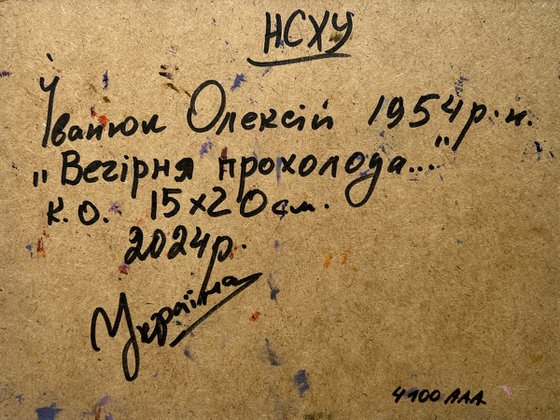 НСХУ
Іванюк Олексій 1954р.н.
"Вечірня прохолода..."
к.о. 15х20см.
2024р.
Україна
4100 ААА